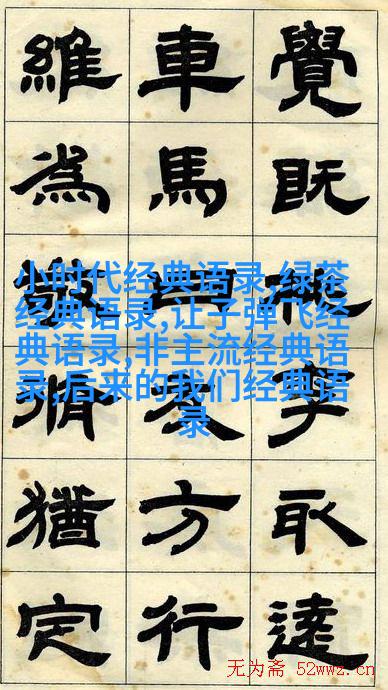 覺既取
車馬方行
維為猶定
小时代经典语录,绿茶
经典语录,让子弹飞经
典语录,非主流经典语
录,后来的我们经典语
录
无为斋 52wwz.cn